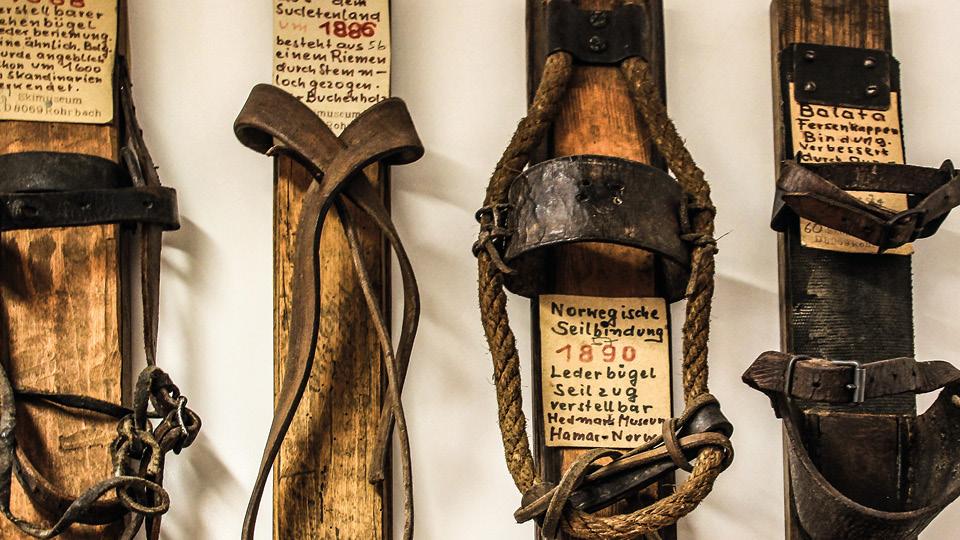 erstellbarer
ehenbügel
eder beriemung.
ine ähnlich. Bdg.
urde angeblich
hon um 1600
Skandinavien
Skimuseum
D8069 Rohrbach
Sudetenland
um 1886
besteht aus
einem Riemen
durch Stemm-
loch gezogen.
Buchenholz
museum
Norwegische
Seilbindung
1890
Lederbügel
Seilzug
verstellbar
Hedmark Museum
Hamar-Norw
Balata
Fersenkappen
Bindung.
verbessert
durch
60
D8069